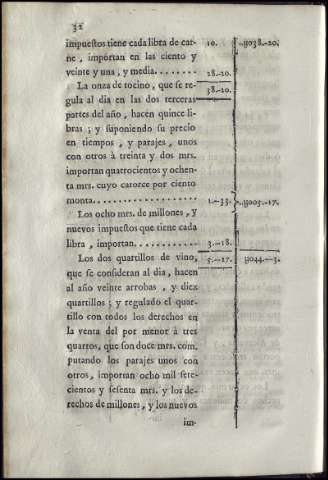 32
impuestos tiene cada libra de car- 10. .y038.-20.
ne, importan en las ciento y
veinte y una, y media........ 28.-20.
La onza de tocino, que se re- 38.-20.
gula al dia en las dos terceras
partes del año, hacen quince li-
bras; y suponiendo su precio
en tiempos, y parajes, unos
con otros à treinta y dos mrs.
importan quatrocientos y ochen-
ta mrs. cuyo catorce por ciento
monta.................. 1.-33. .y005.-17.
Los ocho mrs. de millones, y
nuevos impuestos que tiene cada
libra, importan............ 3.-18.
Los dos quartillos de vino, 5.-17. y044.-3.
que se consideran al dia, hacen
al año veinte arrobas, y diez
quartillos; y regulado el quar-
tillo con todos los derechos en
la venta del por menor à tres
quartos, que son doce mrs. com-
putando los parajes unos con
otros, importan ocho mil sete-
cientos y sesenta mrs. y los de-
rechos de millones, y los nuevos
im-